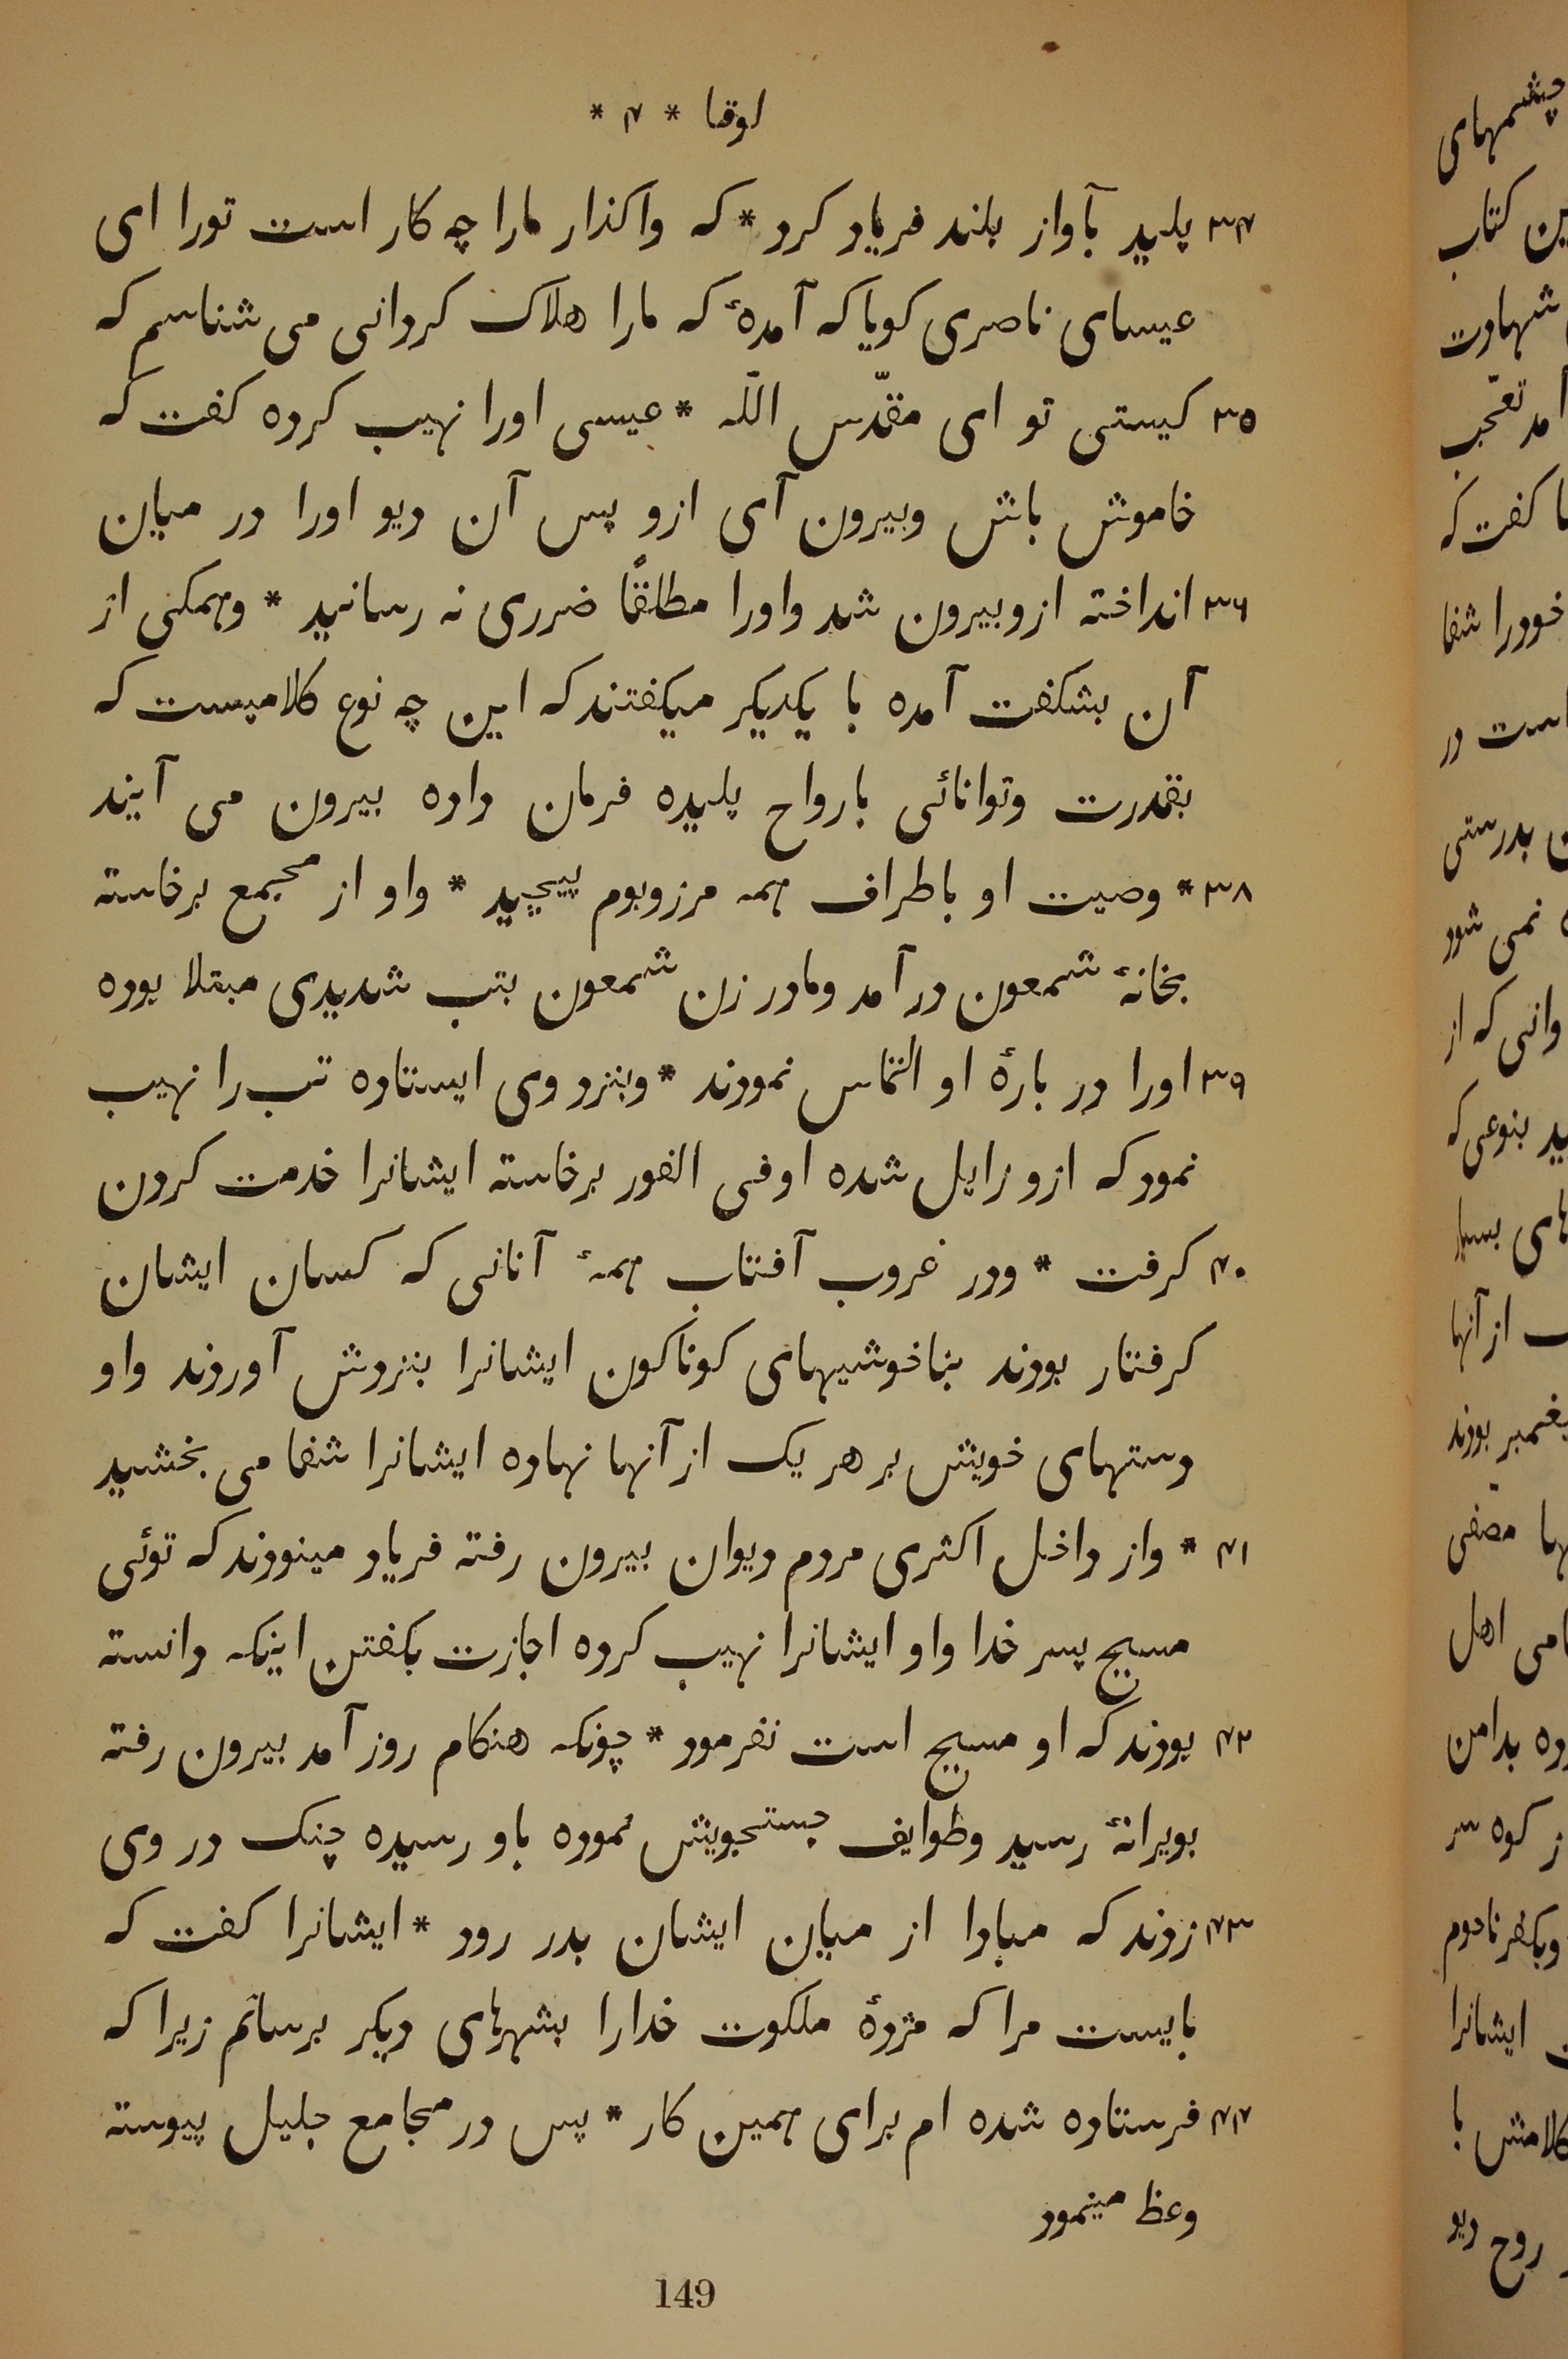 لوقا * ۴ *
۳۴ پلید بآواز بلند فریاد کرد * که واکذار مارا چه کار است تورا ای
عیسای ناصری کویا که آمدۀ که مارا هلاک کردانی می شناسم که
۳۵ کیستی تو ای مقدّس اللّه * عیسی اورا نهیب کرده کفت که
خاموش باش وبیرون آی ازو پس آن دیو اورا در میان
۳۶ انداخته ازو بیرون شد واورا مطلقًا ضرری نه رسانید * وهمکی از
آن بشکفت آمده با یکدیکر میکفتند که این چه نوع کلامیست که
بقدرت وتوانائی بارواح پلیده فرمان داده بیرون می آیند
۳۸ * وصیت او باطراف همه مرزوبوم پیچید * واو از مجمع برخاسته
بخانۀ شمعون در آمد ومادر زن شمعون بتب شدیدی مبتلا بوده
۳۹ اورا در بارۀ او التماس نمودند * وبنزد وی ایستاده تب را نهیب
نمود که ازو زایل شده او فی الفور برخاسته ایشانرا خدمت کردن
۴۰ کرفت * ودر غروب آفتاب همۀ آنانی که کسان ایشان
کرفتار بودند بناخوشیهای کوناکون ایشانرا بنزدش آوردند واو
دستهای خویش بر هر یک از آنها نهاده ایشانرا شفا می بخشید
۴۱ * واز داخل اکثری مردم دیوان بیرون رفته فریاد مینودند که توئی
مسیح پسر خدا واو ایشانرا نهیب کرده اجازت بکفتن اینکه دانسته
۴۲ بودند که او مسیح است نفرمود * چونکه هنکام روز آمد بیرون رفته
بویرانۀ رسید وطوایف جستجویش نموده باو رسیده چنک در وی
۴۳ زدند که مبادا از میان ایشان بدر رود * ایشانرا کفت که
بایست مرا که مژدۀ ملکوت خدارا بشهرهای دیکر برسانم زیرا که
۴۴ فرستاده شده ام برای همین کار * پس در مجامع جلیل پیوسته
وعظ مینمود
149
چشمهای
کتاب
شهادت
تعجّب
کفت که
خودرا شفا
است در
بدرستی
نمی شود
که از
بنوعی که
های بسیار
از آنها
بودند
مصفی
اهل
بدامن
کوه سر
وبکفرناحوم
ایشانرا
کلامش با
روح دیو